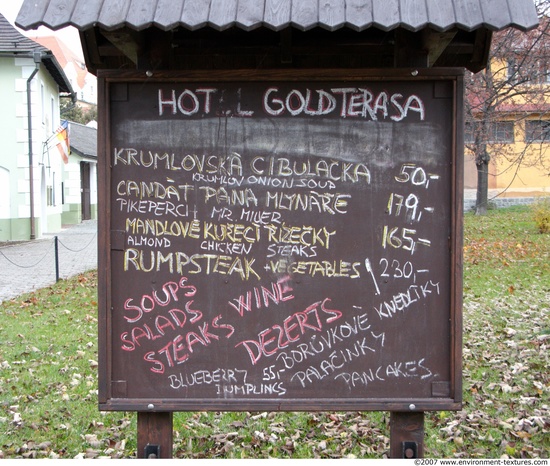 HOTEL GOLDTERASA
KRUMLOVSKÁ CIBULAČKA 50,-
KRUMLOV ONION SOUP
CANDÁT PANA MLYNÁŘE 179,-
PIKEPERCH MR. MILLER
MANDLOVÉ KUŘECÍ ŘÍZEČKY 165,-
ALMOND CHICKEN STEAKS
RUMPSTEAK + VEGETABLES 230,-
SOUPS WINE
SALADS
STEAKS DEZERTS
BORŮVKOVÉ KNEDLÍKY
BLUEBERRY DUMPLINGS 55,-
PALAČINKY
PANCAKES
©2007 www.environment-textures.com